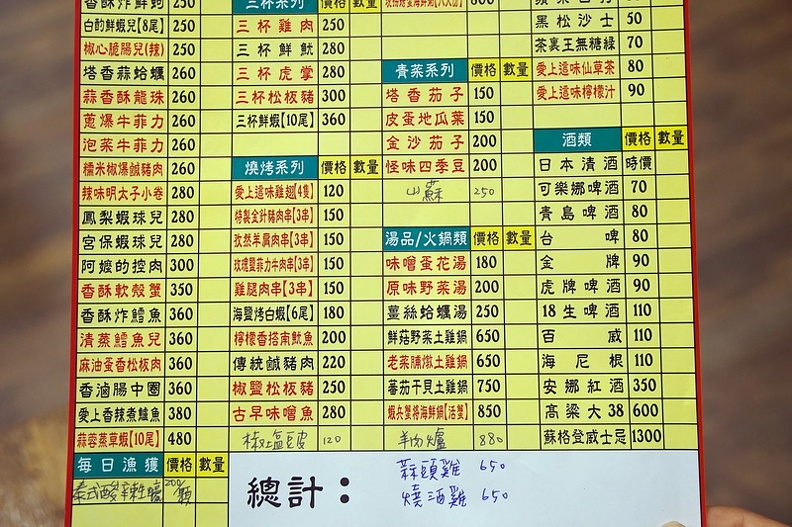 香酥炸鮮蚵 250
白酌鮮蝦【8尾】 250
椒心脆腸兒(辣) 250
塔香蒜蛤蠣 260
蒜香酥龍珠 260
蔥爆牛菲力 260
泡菜牛菲力 260
糯米椒爆鹹豬肉 260
辣味明太子小卷 280
鳳梨蝦球兒 280
宮保蝦球兒 280
阿嬤的控肉 300
香酥軟殼蟹 350
香酥炸鱈魚 360
清蒸鱈魚兒 360
麻油蛋香松板肉 360
香滷腸中圈 360
愛上香辣煮鱸魚 380
蒜蓉蒸草蝦【10尾】 480
每日漁獲 價格 數量
泰式酸辣生蠔 200/顆
三杯系列 價格 數量
三杯雞肉 250
三杯鮮魷 280
三杯虎掌 280
三杯松板豬 300
三杯鮮蝦【10尾】 360
燒烤系列 價格 數量
愛上這味雞翅【4隻】 120
特製金針豬肉串【3串】 150
孜然羊肩肉串【3串】 150
玫瑰鹽菲力牛肉串【3串】 150
雞腿肉串【3串】 150
海鹽烤白蝦【6尾】 180
檸檬香搭南魷魚 200
傳統鹹豬肉 220
椒鹽松板豬 250
古早味噌魚 280
椒鹽豆皮 120
800
青菜系列 價格 數量
塔香茄子 150
皮蛋地瓜葉 150
金沙茄子 200
怪味四季豆 200
山蘇 250
湯品/火鍋類 價格 數量
味噌蛋花湯 180
原味野菜湯 200
薑絲蛤蠣湯 250
鮮菇野菜土雞鍋 650
老菜脯燉土雞鍋 650
蕃茄干貝土雞鍋 750
蝦兵蟹將海鮮鍋【活蟹】 850
羊肉爐 880
蘋果西打
黑松沙士 50
茶裏王無糖綠 70
愛上這味仙草茶 80
愛上這味檸檬汁 90
酒類 價格 數量
日本清酒 時價
可樂娜啤酒 70
青島啤酒 80
台啤 80
金牌 90
虎牌啤酒 90
18生啤酒 110
百威 110
海尼根 110
安娜紅酒 350
高粱大38 600
蘇格登威士忌 1300
總計：
蒜頭雞 650
燒酒雞 650